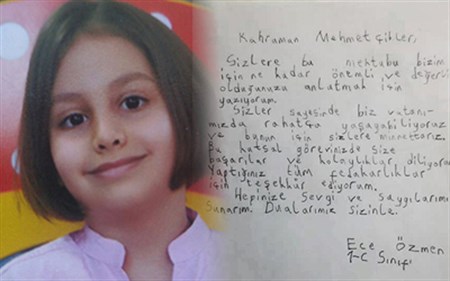 Kahraman Mehmetçikler,
Sizlere bu mektubu bizim
için ne kadar öntmli ve değerli
olduğunuzu anlatmak için
yazıyorum.
Sizler sayesinde biz vatanı-
mızda rahatça yaşayabiliyoruz
ve bunun için sizlere minnettarız.
Bu kutsal görevinizde size
başarılar ve kolaylıklar diliyorum
Yaptığınız tüm fedakarlıklar
için teşekkür ediyorum.
Hepinize sevgi ve saygılarımı
sunarım. Dualarımız sizinle.
Ece Özmen
1-C Sınıfı